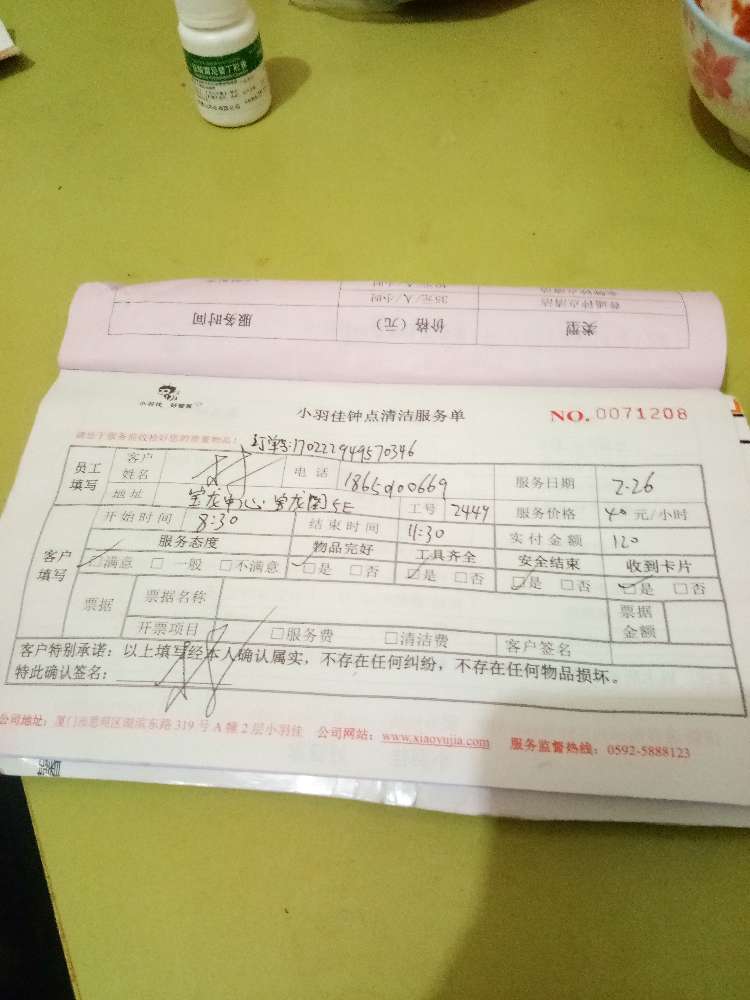 35元/人/小时
普通钟点清洁
类型
价格（元）
服务时间
小羽佳 好管家
小羽佳钟点清洁服务单
NO.0071208
订单号:170222949570346
员工填写
客户姓名
电话
服务日期
2-26
地址
宝龙中心·宝龙阁5E
工号
2449
服务价格
40 元/小时
客户填写
开始时间
8:30
结束时间
11:30
实付金额
120
服务态度
物品完好
工具齐全
安全结束
收到卡片
□满意 □一般 □不满意
□是 □否
□是 □否
□是 □否
□是 □否
票据
票据名称
票据金额
开票项目
□服务费
□清洁费
客户签名
客户特别承诺：以上填写经本人确认属实，不存在任何纠纷，不存在任何物品损坏。
特此确认签名：
公司地址：厦门市思明区湖滨东路319号A幢2层小羽佳 公司网站：www.xiaoyujia.com 服务监督热线：0592-5888123